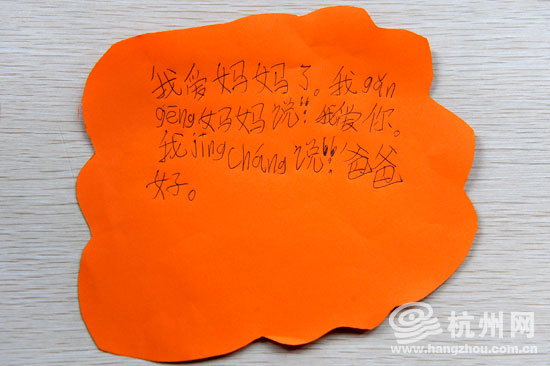 我爱妈妈了。我gǎn
gēng妈妈说!!我爱你。
我jīng cháng说!!爸爸
好。
杭州网
www.hangzhou.com.cn